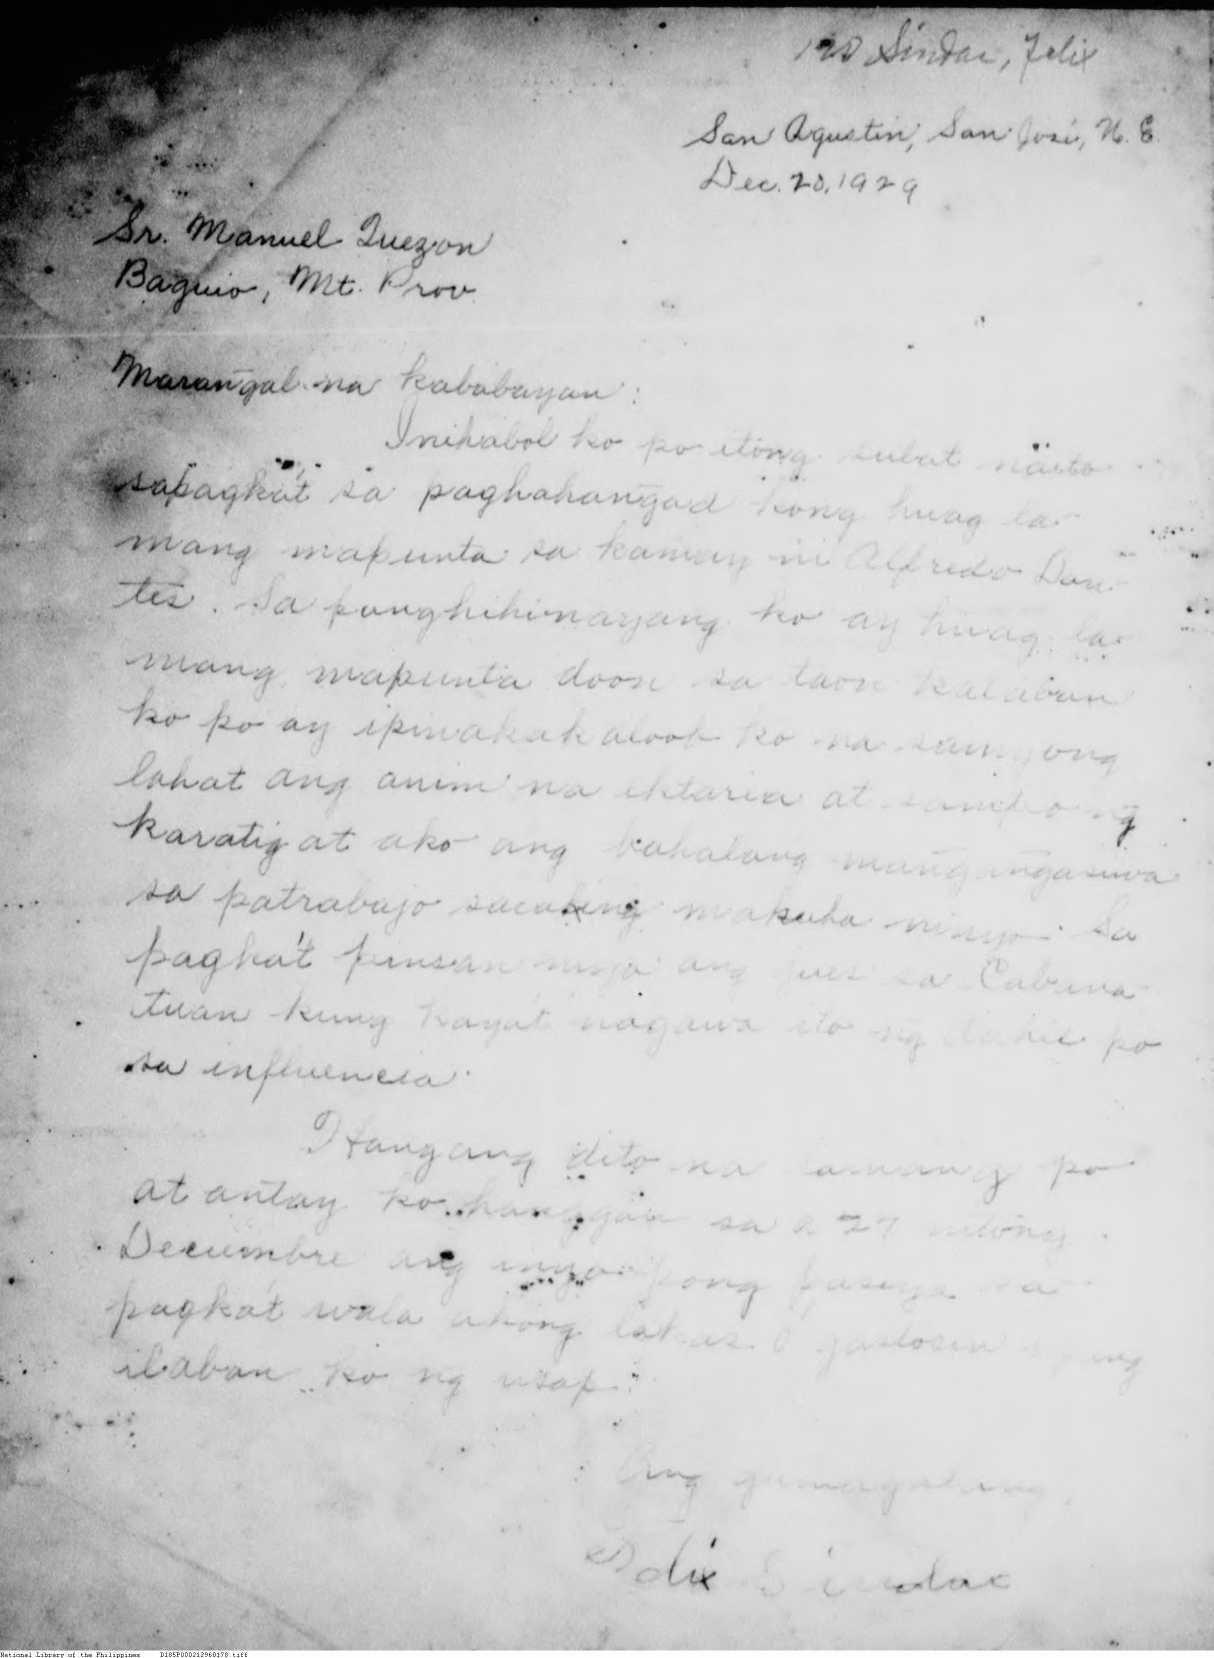 Sindac, Felix
San Agustin, San José, N. E.
Dec. 20, 1929
Sr. Manuel Quezon
Baguio, Mt. Prov.
Maran̄gal na kababayan:
Inihabol ko po itong sulat
sapagkat sa paghahan̄gad kong huag la-
mang mapunta sa kamay ni Alfredo Dan-
tes. Sa panghihinayang ko ay huag la-
mang mapunta doon sa taon kalaban
ko po ay ipinakakaloob ko na
lahat ang anim na ektaria at ng
karatig at ako ang bahalang
sa patrabajo makuha ninyo. Sa
pagka't pinsan niya ang jues sa Cabana-
tuan kung kaya't nagawa ito ng dahil po
sa influencia.
Hangang dito na lamang po
at antay ko hanggan sa a 27 nitong
Decembre ang inyo pong pasiya sa-
pagka't wala akong lakas o
ilaban ko ng usap.
Ang gumagalang,
Felix Sindac
National Library of the Philippines D185P000212960178.tiff